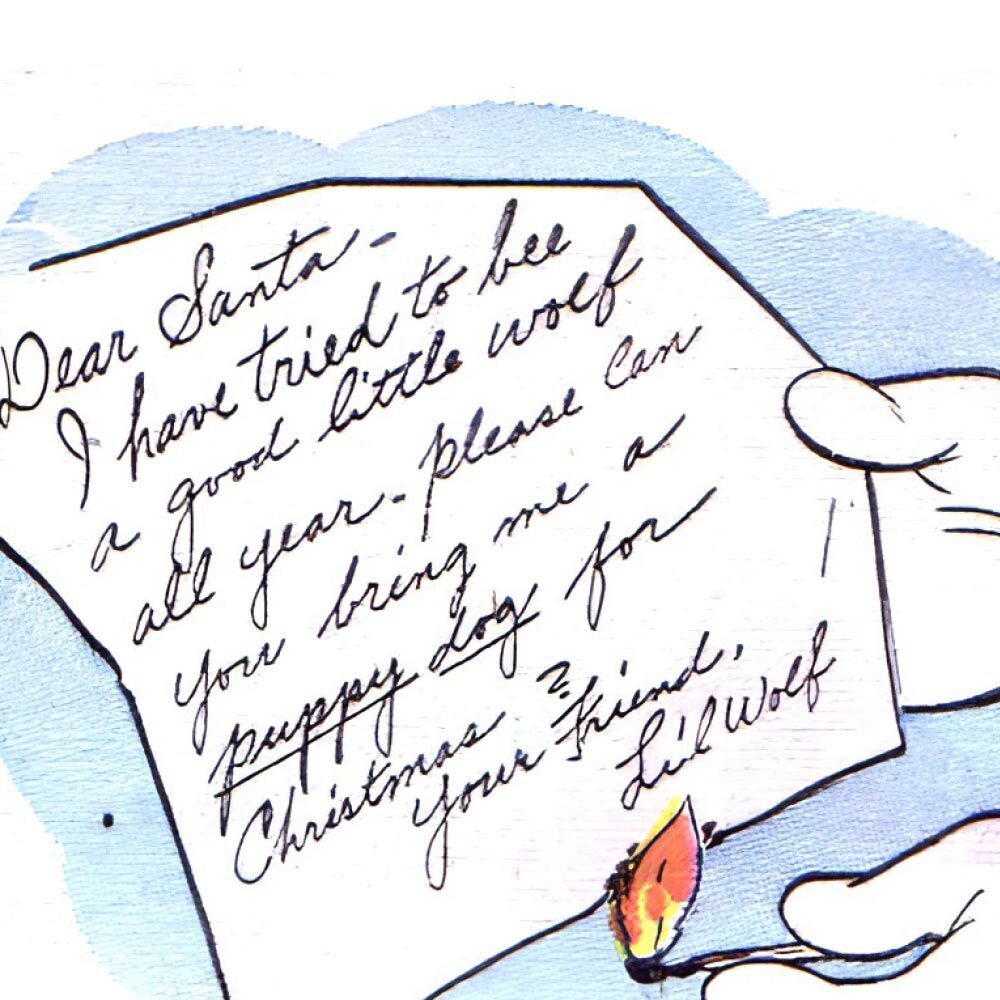 Dear Santa -
I have tried to bee
a good little wolf
all year - please can
you bring me a
puppy dog for
Christmas ?
Your Friend,
Li'l Wolf